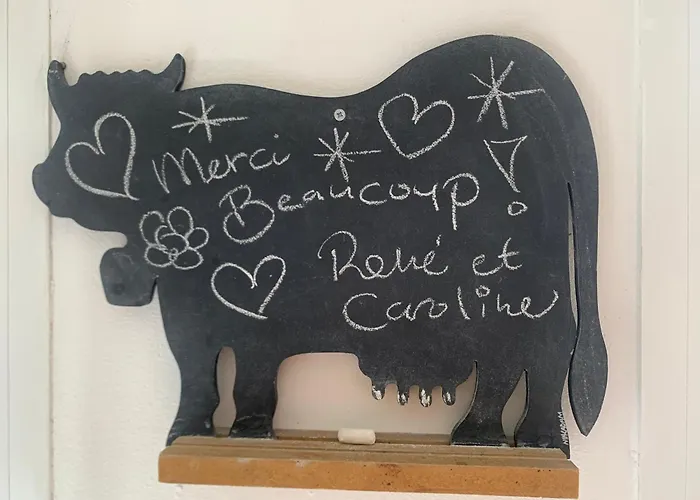 Merci
Beaucoup !
René et
Caroline